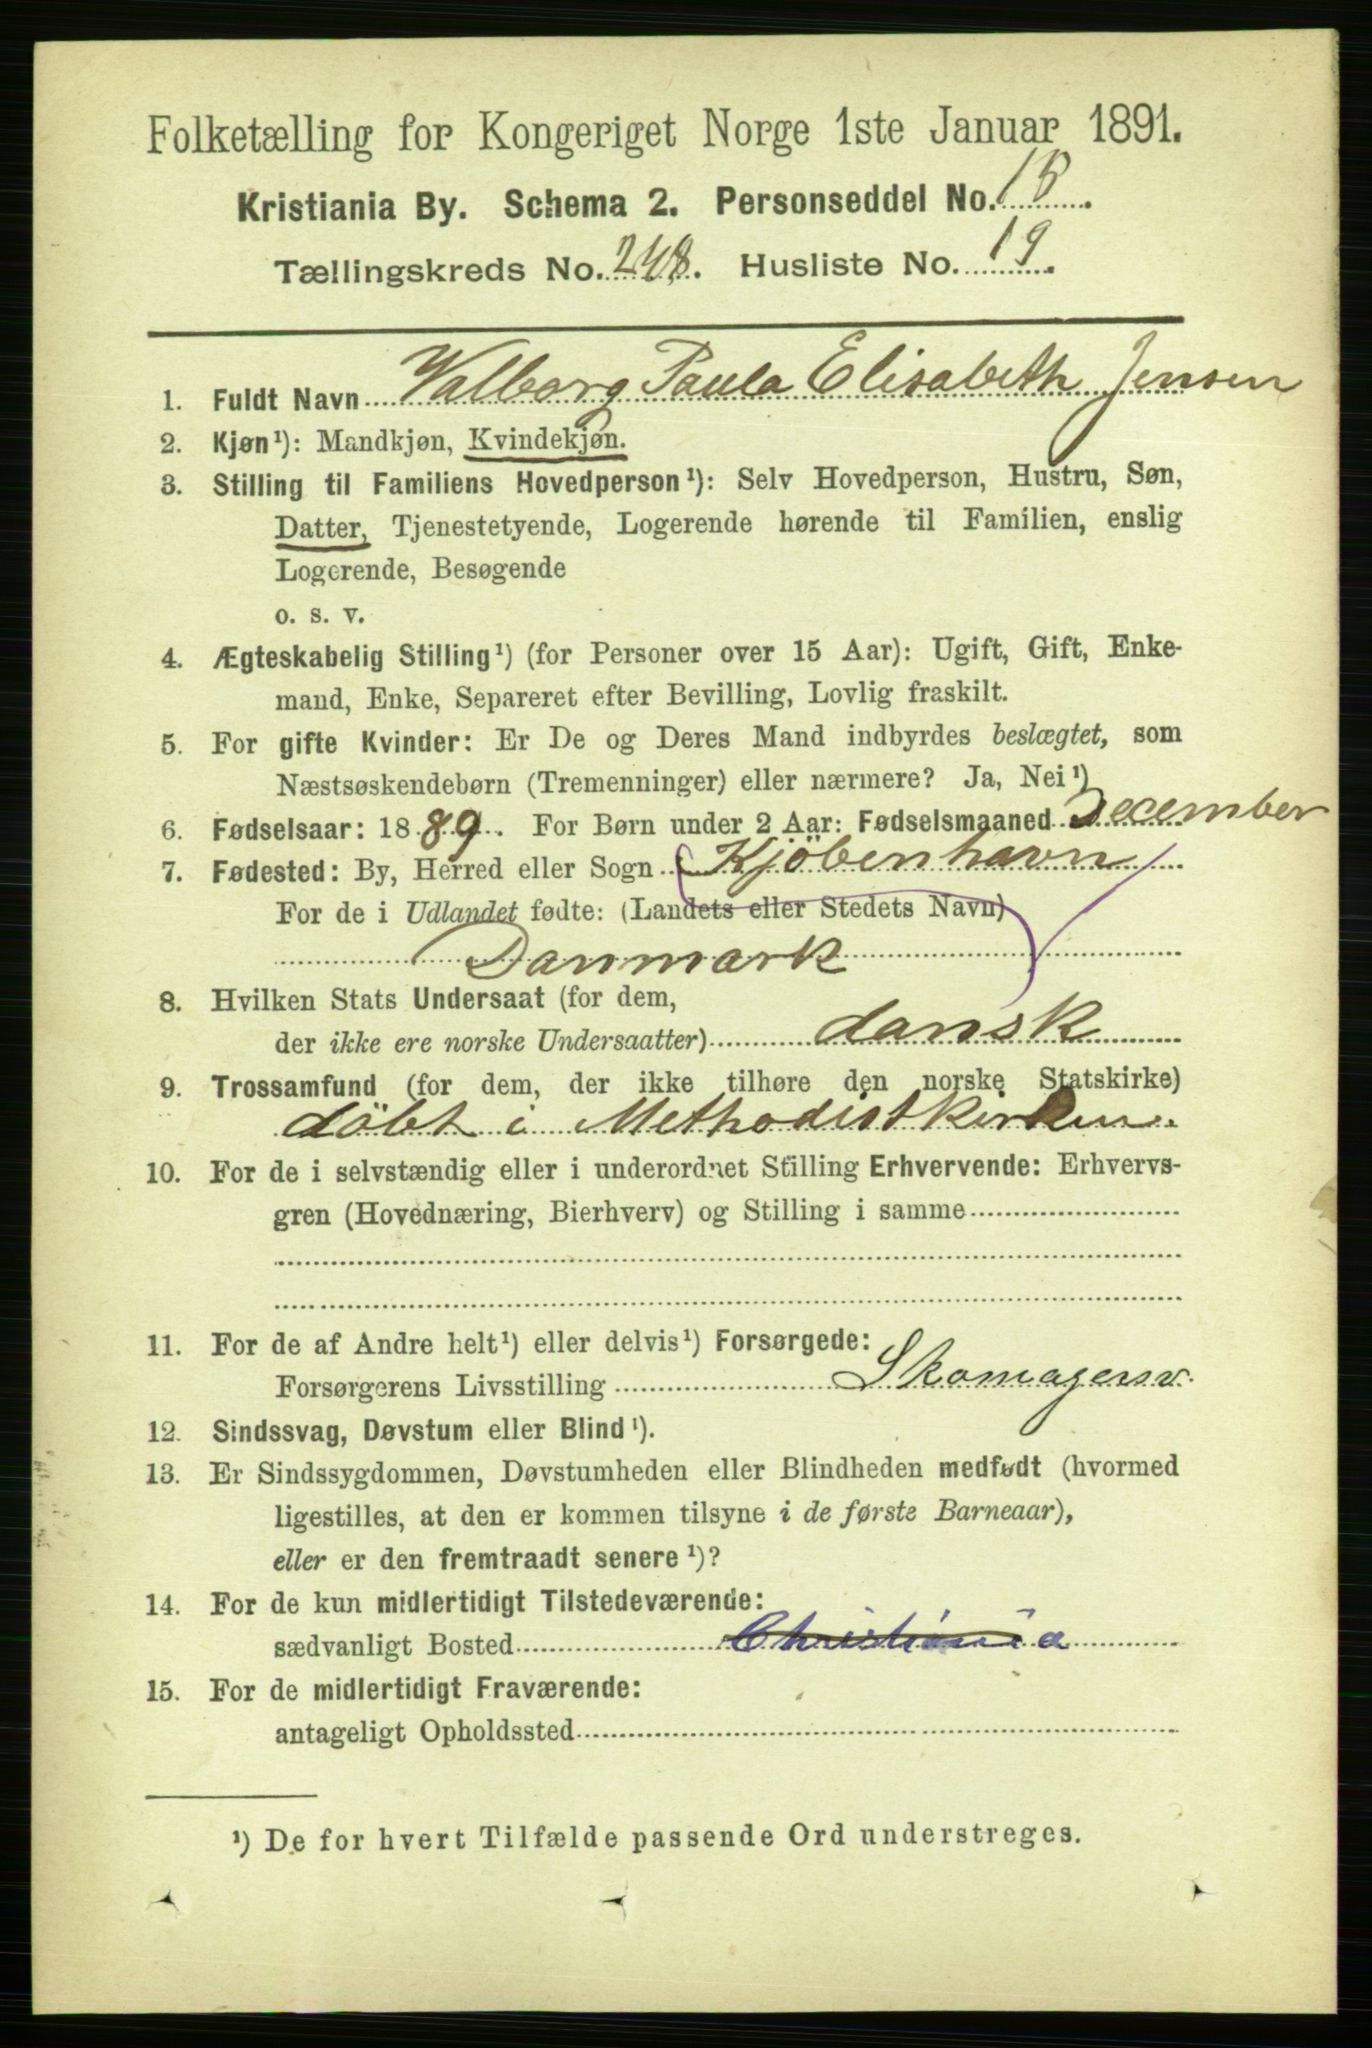 Folketælling for Kongeriget Norge 1ste Januar 1891.
Kristiania By. Schema 2. Personseddel No. 15.
Tællingskreds No. 248. Husliste No. 19.
1. Fuldt Navn Valborg Paula Elisabeth Jensen
2. Kjøn¹): Mandkjøn, Kvindekjøn.
3. Stilling til Familiens Hovedperson¹): Selv Hovedperson, Hustru, Søn,
Datter, Tjenestetyende, Logerende hørende til Familien, enslig
Logerende, Besøgende
o. s. v.
4. Ægteskabelig Stilling¹) (for Personer over 15 Aar): Ugift, Gift, Enke-
mand, Enke, Separeret efter Bevilling, Lovlig fraskilt.
5. For gifte Kvinder: Er De og Deres Mand indbyrdes beslægtet, som
Næstsøskendebørn (Tremenninger) eller nærmere? Ja, Nei¹)
6. Fødselsaar: 1889. For Børn under 2 Aar: Fødselsmaaned December
7. Fødested: By, Herred eller Sogn Kjöbenhavn
For de i Udlandet fødte: (Landets eller Stedets Navn)
Danmark
8. Hvilken Stats Undersaat (for dem,
der ikke ere norske Undersaatter) dansk
9. Trossamfund (for dem, der ikke tilhøre den norske Statskirke)
döbt i Methodistkirken.
10. For de i selvstændig eller i underordnet Stilling Erhvervende: Erhvervs-
gren (Hovednæring, Bierhverv) og Stilling i samme
11. For de af Andre helt¹) eller delvis¹) Forsørgede:
Forsørgerens Livsstilling Skomagersv.
12. Sindssvag, Døvstum eller Blind¹).
13. Er Sindssygdommen, Døvstumheden eller Blindheden medfødt (hvormed
ligestilles, at den er kommen tilsyne i de første Barneaar),
eller er den fremtraadt senere¹)?
14. For de kun midlertidigt Tilstedeværende:
sædvanligt Bosted Christiania
15. For de midlertidigt Fraværende:
antageligt Opholdssted
¹) De for hvert Tilfælde passende Ord understreges.